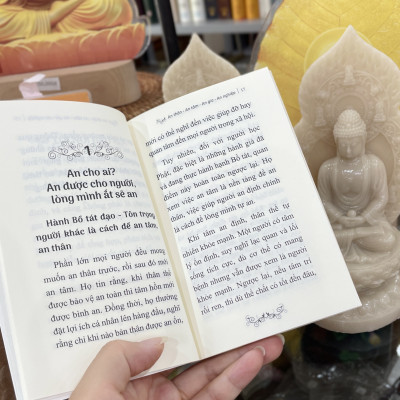 1
An cho ai?
An được cho người,
lòng mình ắt sẽ an
Hành Bồ tát đạo - Tôn trọng
người khác là cách để an tâm,
an thân
Phần lớn mọi người đều mong
muốn an thân trước, rồi sau đó mới
an tâm. Họ tin rằng, khi thân thể
được bảo vệ an toàn thì tâm hồn mới
được bình an. Đồng thời, họ thường
đặt lợi ích cá nhân lên hàng đầu, nghĩ
rằng chỉ khi nào bản thân được an ổn,
mới có thể nghĩ đến việc giúp đỡ hay
quan tâm đến mọi người trong xã hội.
Tuy nhiên, đối với người học
Phật, đặc biệt là những hành giả đã
và đang thực hành hạnh Bồ tát, quan
điểm này hoàn toàn ngược lại. Họ
xem việc an tâm là nền tảng để an
thân, việc giúp người an định chính
là cách để lòng mình tự an.
Khi tâm an định, thân thể tự
nhiên khỏe mạnh. Một người có tâm
lý ổn định, suy nghĩ lạc quan và lối
sống tích cực, dù cơ thể có mang
bệnh nhưng vẫn được xem là người
khỏe mạnh. Ngược lại, nếu tâm trí
rối ren, thì dù thể chất có tốt đến đâu,